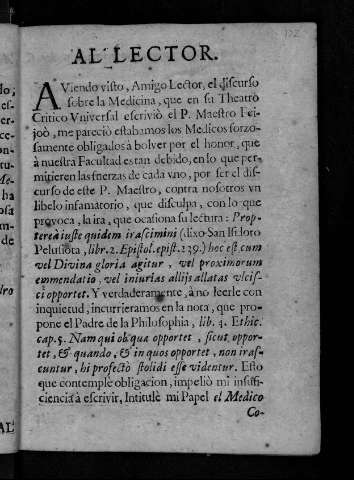 172
AL LECTOR.
AViendo visto, Amigo Lector, el discurso
sobre la Medicina, que en su Theatrò
Critico Vniversal escriviò el P. Maestro Fei-
joò, me pareciò estabamos los Medicos forzo-
samente obligados à bolver por el honor, que
à nuestra Facultad es tan debido, en lo que per-
mitieren las fuerzas de cada vno, por ser el dis-
curso de este P. Maestro, contra nosotros vn
libelo infamatorio, que disculpa, con lo que
provoca, la ira, que ocasiona su lectura: Prop-
tereà iuste quidem irascimini (dixo San Isidoro
Pelusiota, libr. 2. Epistol. epist. 239.) hoc est cum
vel Divina gloria agitur, vel proximorum
emmendatio, vel iniurias allijs allatas vlcis-
ci opportet. Y verdaderamente, à no leerle con
inquietud, incurrieramos en la nota, que pro-
pone el Padre de la Philosophia, lib. 4. Ethic.
cap. 5. Nam qui ob qua opportet, sicut oppor-
tet, & quando, & in quos opportet, non iras-
cuntur, hi profectò stolidi esse videntur. Esto
que contemplè obligacion, impeliò mi insufi-
ciencia à escrivir, Intitulè mi Papel el Medico
Co-